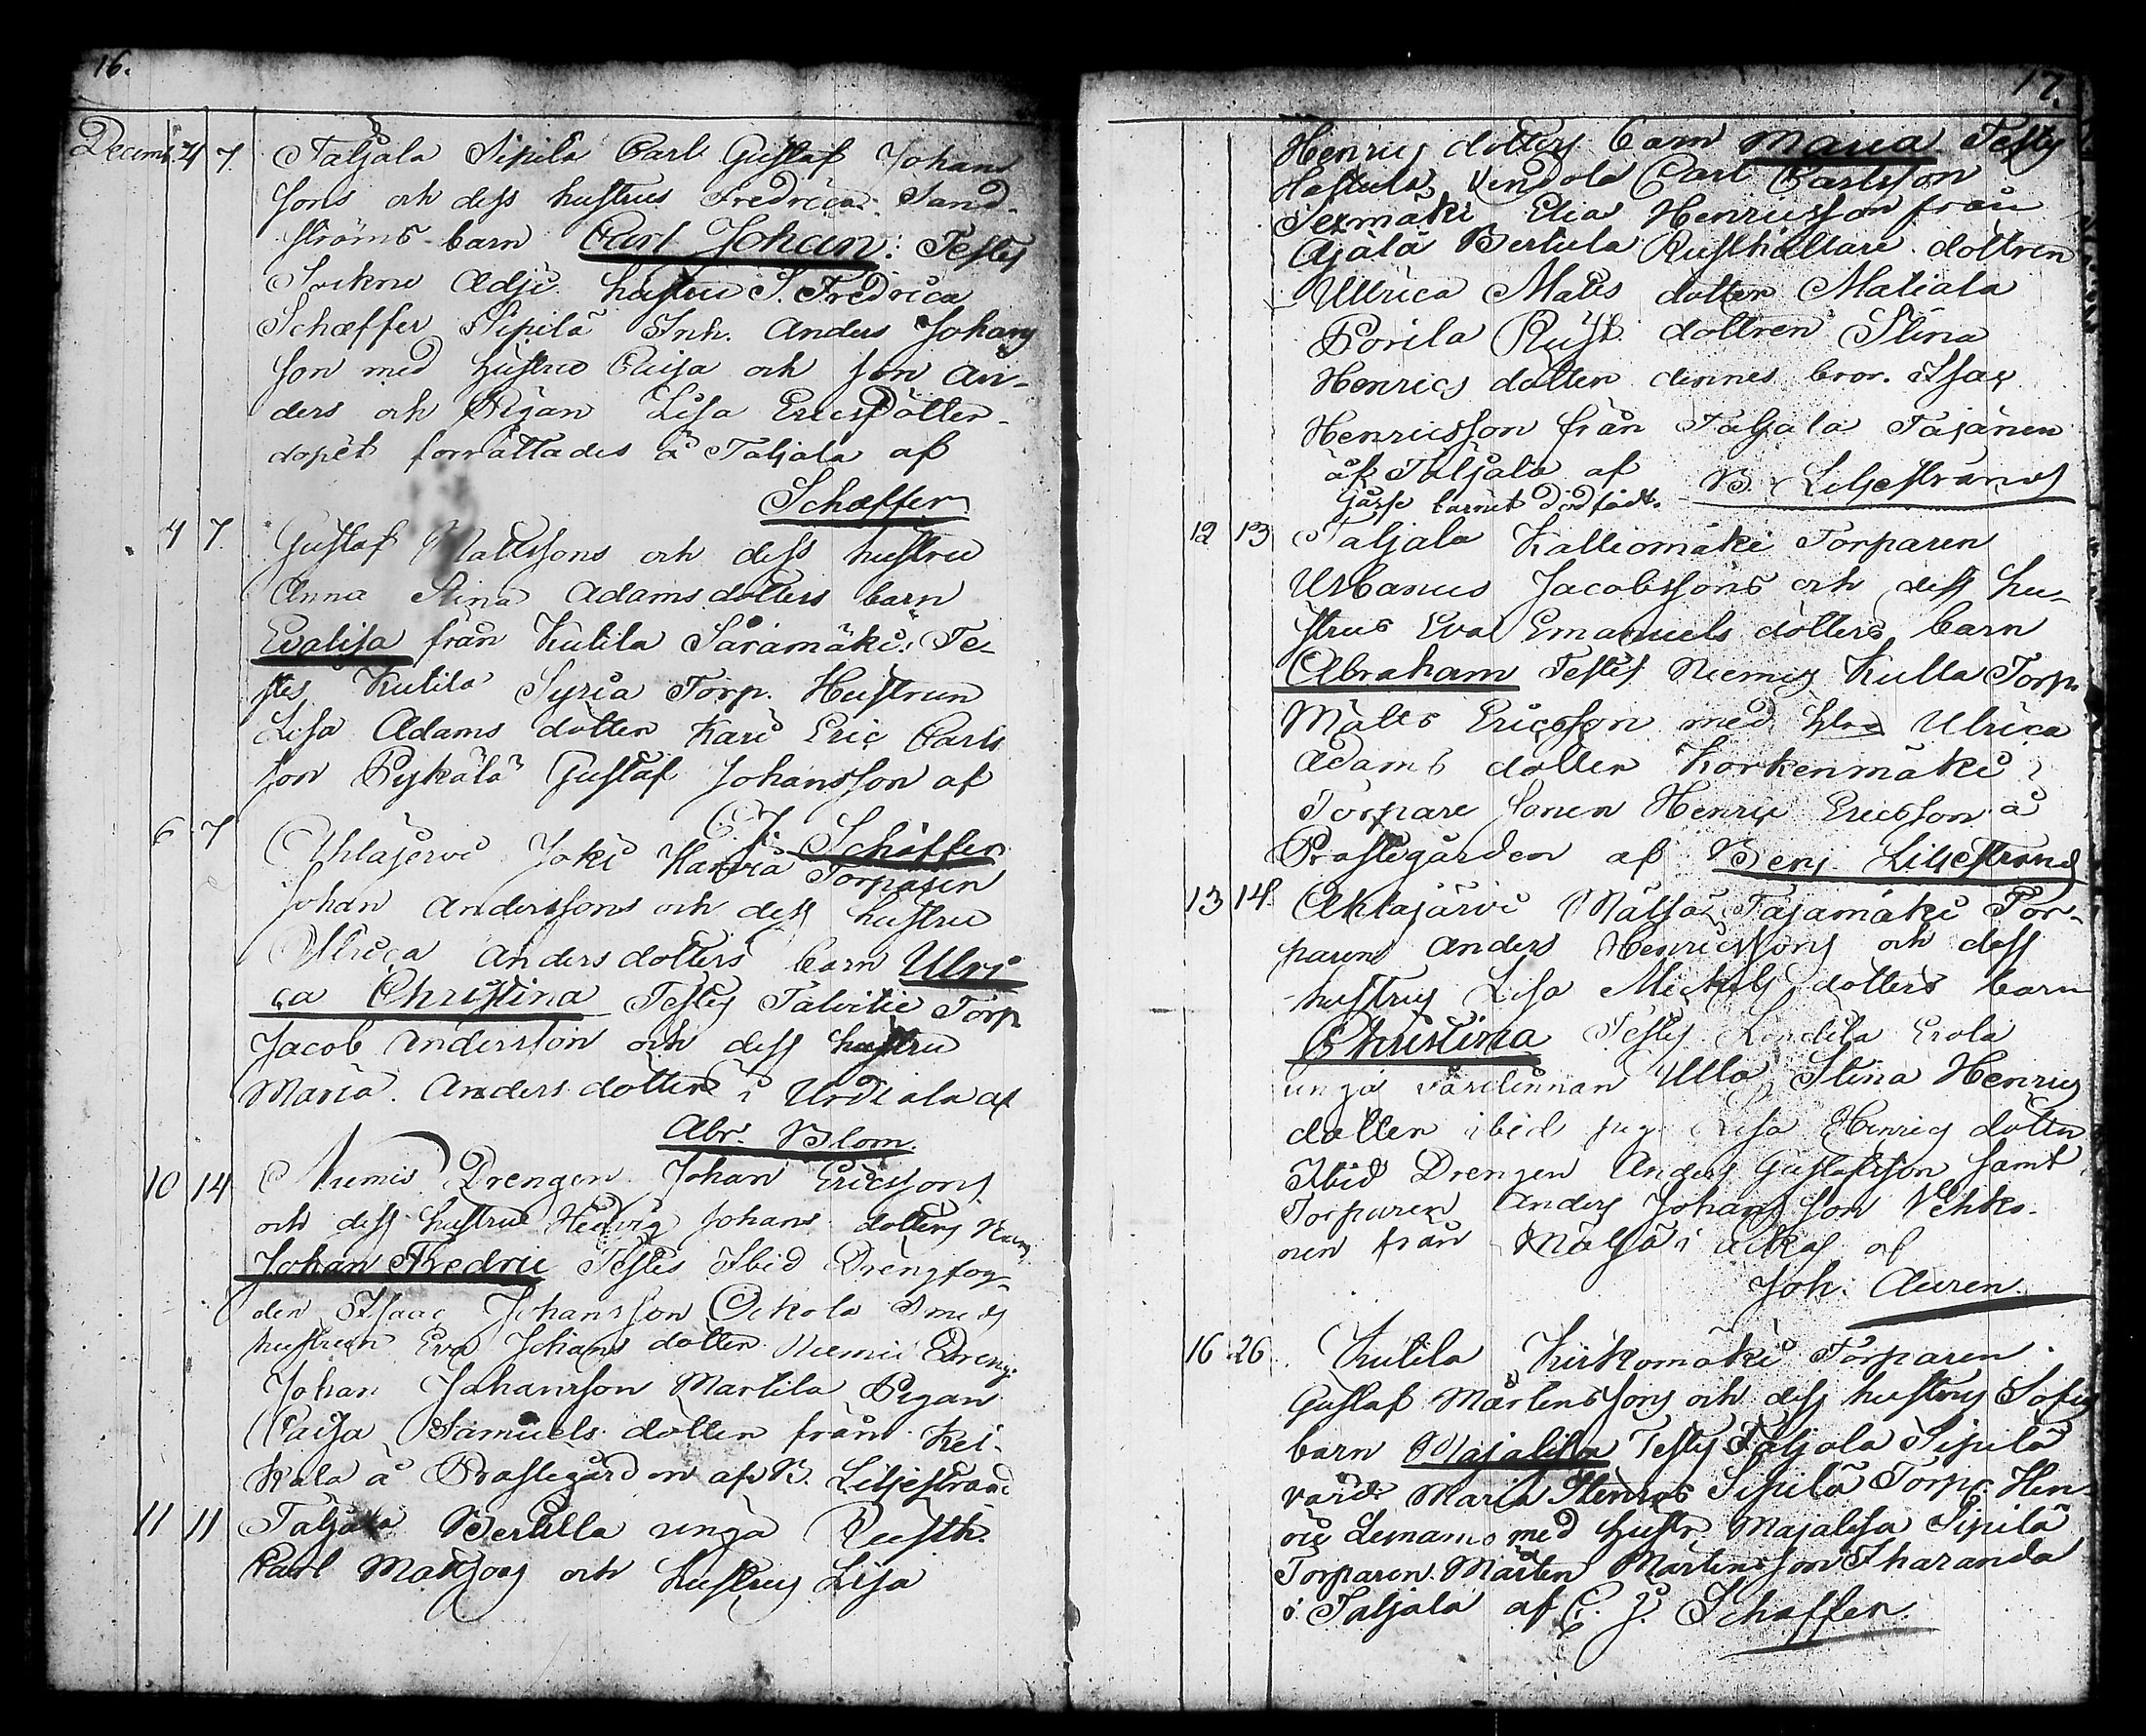 16.
Decemb. 4 7. Taljala Sipilä Carl Gustaf Johans
sons och dess hustrus Fredrica Sand-
ströms barn Carl Johan: Testes
Sockne Adj: hustru S. Fredrica
Schæffer Sipilä Inh. Anders Johans
son med hustru Caisa och son An-
ders och Pigan Lisa Ericsdotter
dopet forrättades å Taljala af
Schæffer
4 7. Gustaf Mattssons och dess hustru
Anna Stina Adams dotters barn
Evalisa från Kutila Saramäki: Te-
stes Kutila Syria Torp. Hustrun
Lisa Adams dotter Kari Eric Carls
son Pykälä Gustaf Johansson af
C. J. Schäffer
6 7 Ahlajervi Joki Karvia Torparen
Johan Anderssons och dess hustru
Ulrica Anders dotters barn Ulri
ca Christina Testes Talvitie Torp
Jacob Andersson och dess hustru
Maria Anders dotter i Urdiala af
Abr. Blom.
10 14 Niemis Drengen Johan Ericssons
och dess hustrus Hedvig Johans dotters Barn
Johan Fredric Testes Ibid Drengfog-
den Isaac Johansson Oikola Smeds
hustrun Eva Johans dotter Niemis Dreng:
Johan Johansson Martila Pigan
Caisa Samuels dotter från Kei-
kala å Prästegården af B. Liljestrand
11 11 Taljala Bertilla unga Rusth.
Carl Matssons och hustrus Lisa
17.
Henrics dotters barn Maria Testes
Carl Carlsson
Elias Henricsson från
Ajälä Bertula Rusthållare dottren
Ullrica Mats dotter Matiala
Porila Rust. dottren Stina
Henrics dotter dennes bror. Isac
Henricsson från Taljala Tajanen
å Taljala af B. Liljestrand
barnet dödfödt.
12 13 Taljala Kalliomäki Torparen
Urbanus Jacobssons och dess hu-
strus Eva Emanuels dotters barn
Abraham Testes Niemis Kulla Torp.
Matts Ericsson med htro Ulrica
Adams dotter Korkenmäki
Torpare sonen Henric Ericsson å
Prästegården af Benj. Liljestrand
13 14 Aktajärvi Mälsä Tajamäki Tor-
paren Anders Henricssons och dess
hustrus Lisa Mickels dotters barn
Christina Testes Erola
unga värdinnan Ulla Stina Henrics
dotter ibid pig. Lisa Henrics dotter
Ibid Drengen Anders Gustafsson samt
Torparen Anders Johansson Vehko-
nen från Mälsä i Ackas af
Joh. Auren
16 26. Kutila Kirkomäki Torparen
Gustaf Mårtenssons och dess hustrus Sofias
barn Majalisa Testes Taljala Sipilä
värd: Maria Sipilä Torp. Hen
ric med hustr Majalisa Sipilä
Torparen Mårten Mårtensson Iharanda
i Taljala af C. J. Schaffer.